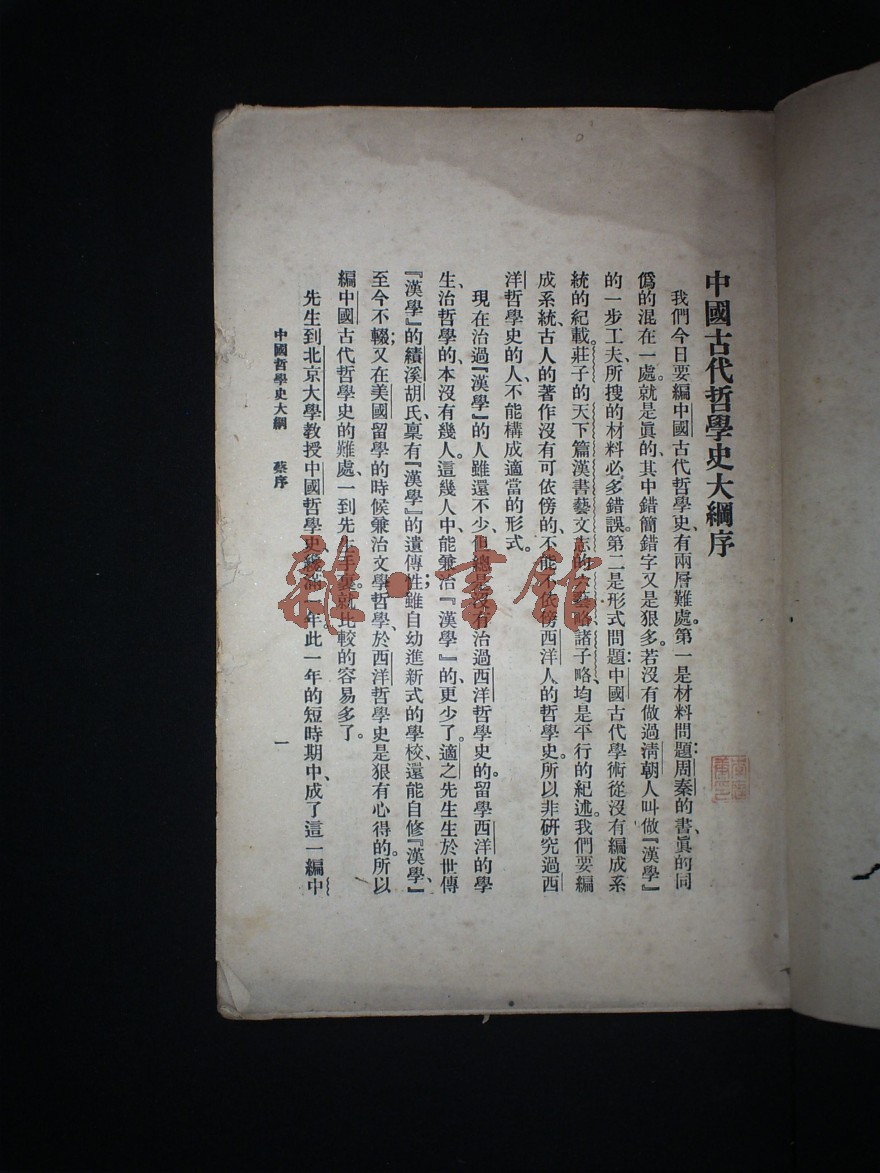 中國古代哲學史大綱序
我們今日要編中國古代哲學史、有兩層難處。第一是材料問題：周秦的書、眞的同
僞的混在一處。就是眞的、其中錯簡錯字又是狠多。若沒有做過清朝人叫做『漢學』
的一步工夫、所搜的材料必多錯誤。第二是形式問題：中國古代學術從沒有編成系
統的紀載。莊子的天下篇、漢書藝文志的六藝略諸子略、均是平行的紀述。我們要編
成系統、古人的著作沒有可依傍的、不能不依傍西洋人的哲學史。所以非硏究過西
洋哲學史的人、不能構成適當的形式。
現在治過『漢學』的人雖還不少、但總是沒有治過西洋哲學史的。留學西洋的學
生、治哲學的、本沒有幾人。這幾人中、能兼治『漢學』的、更少了。適之先生生於世傳
『漢學』的績溪胡氏、稟有『漢學』的遺傳性；雖自幼進新式的學校、還能自修『漢學』、
至今不輟；又在美國留學的時候兼治文學哲學、於西洋哲學史是狠有心得的。所以
編中國古代哲學史的難處、一到先生手裏、就比較的容易多了。
先生到北京大學教授中國哲學史、纔滿一年。此一年的短時期中、成了這一編中
中國哲學史大綱　蔡序
一
雜·書館